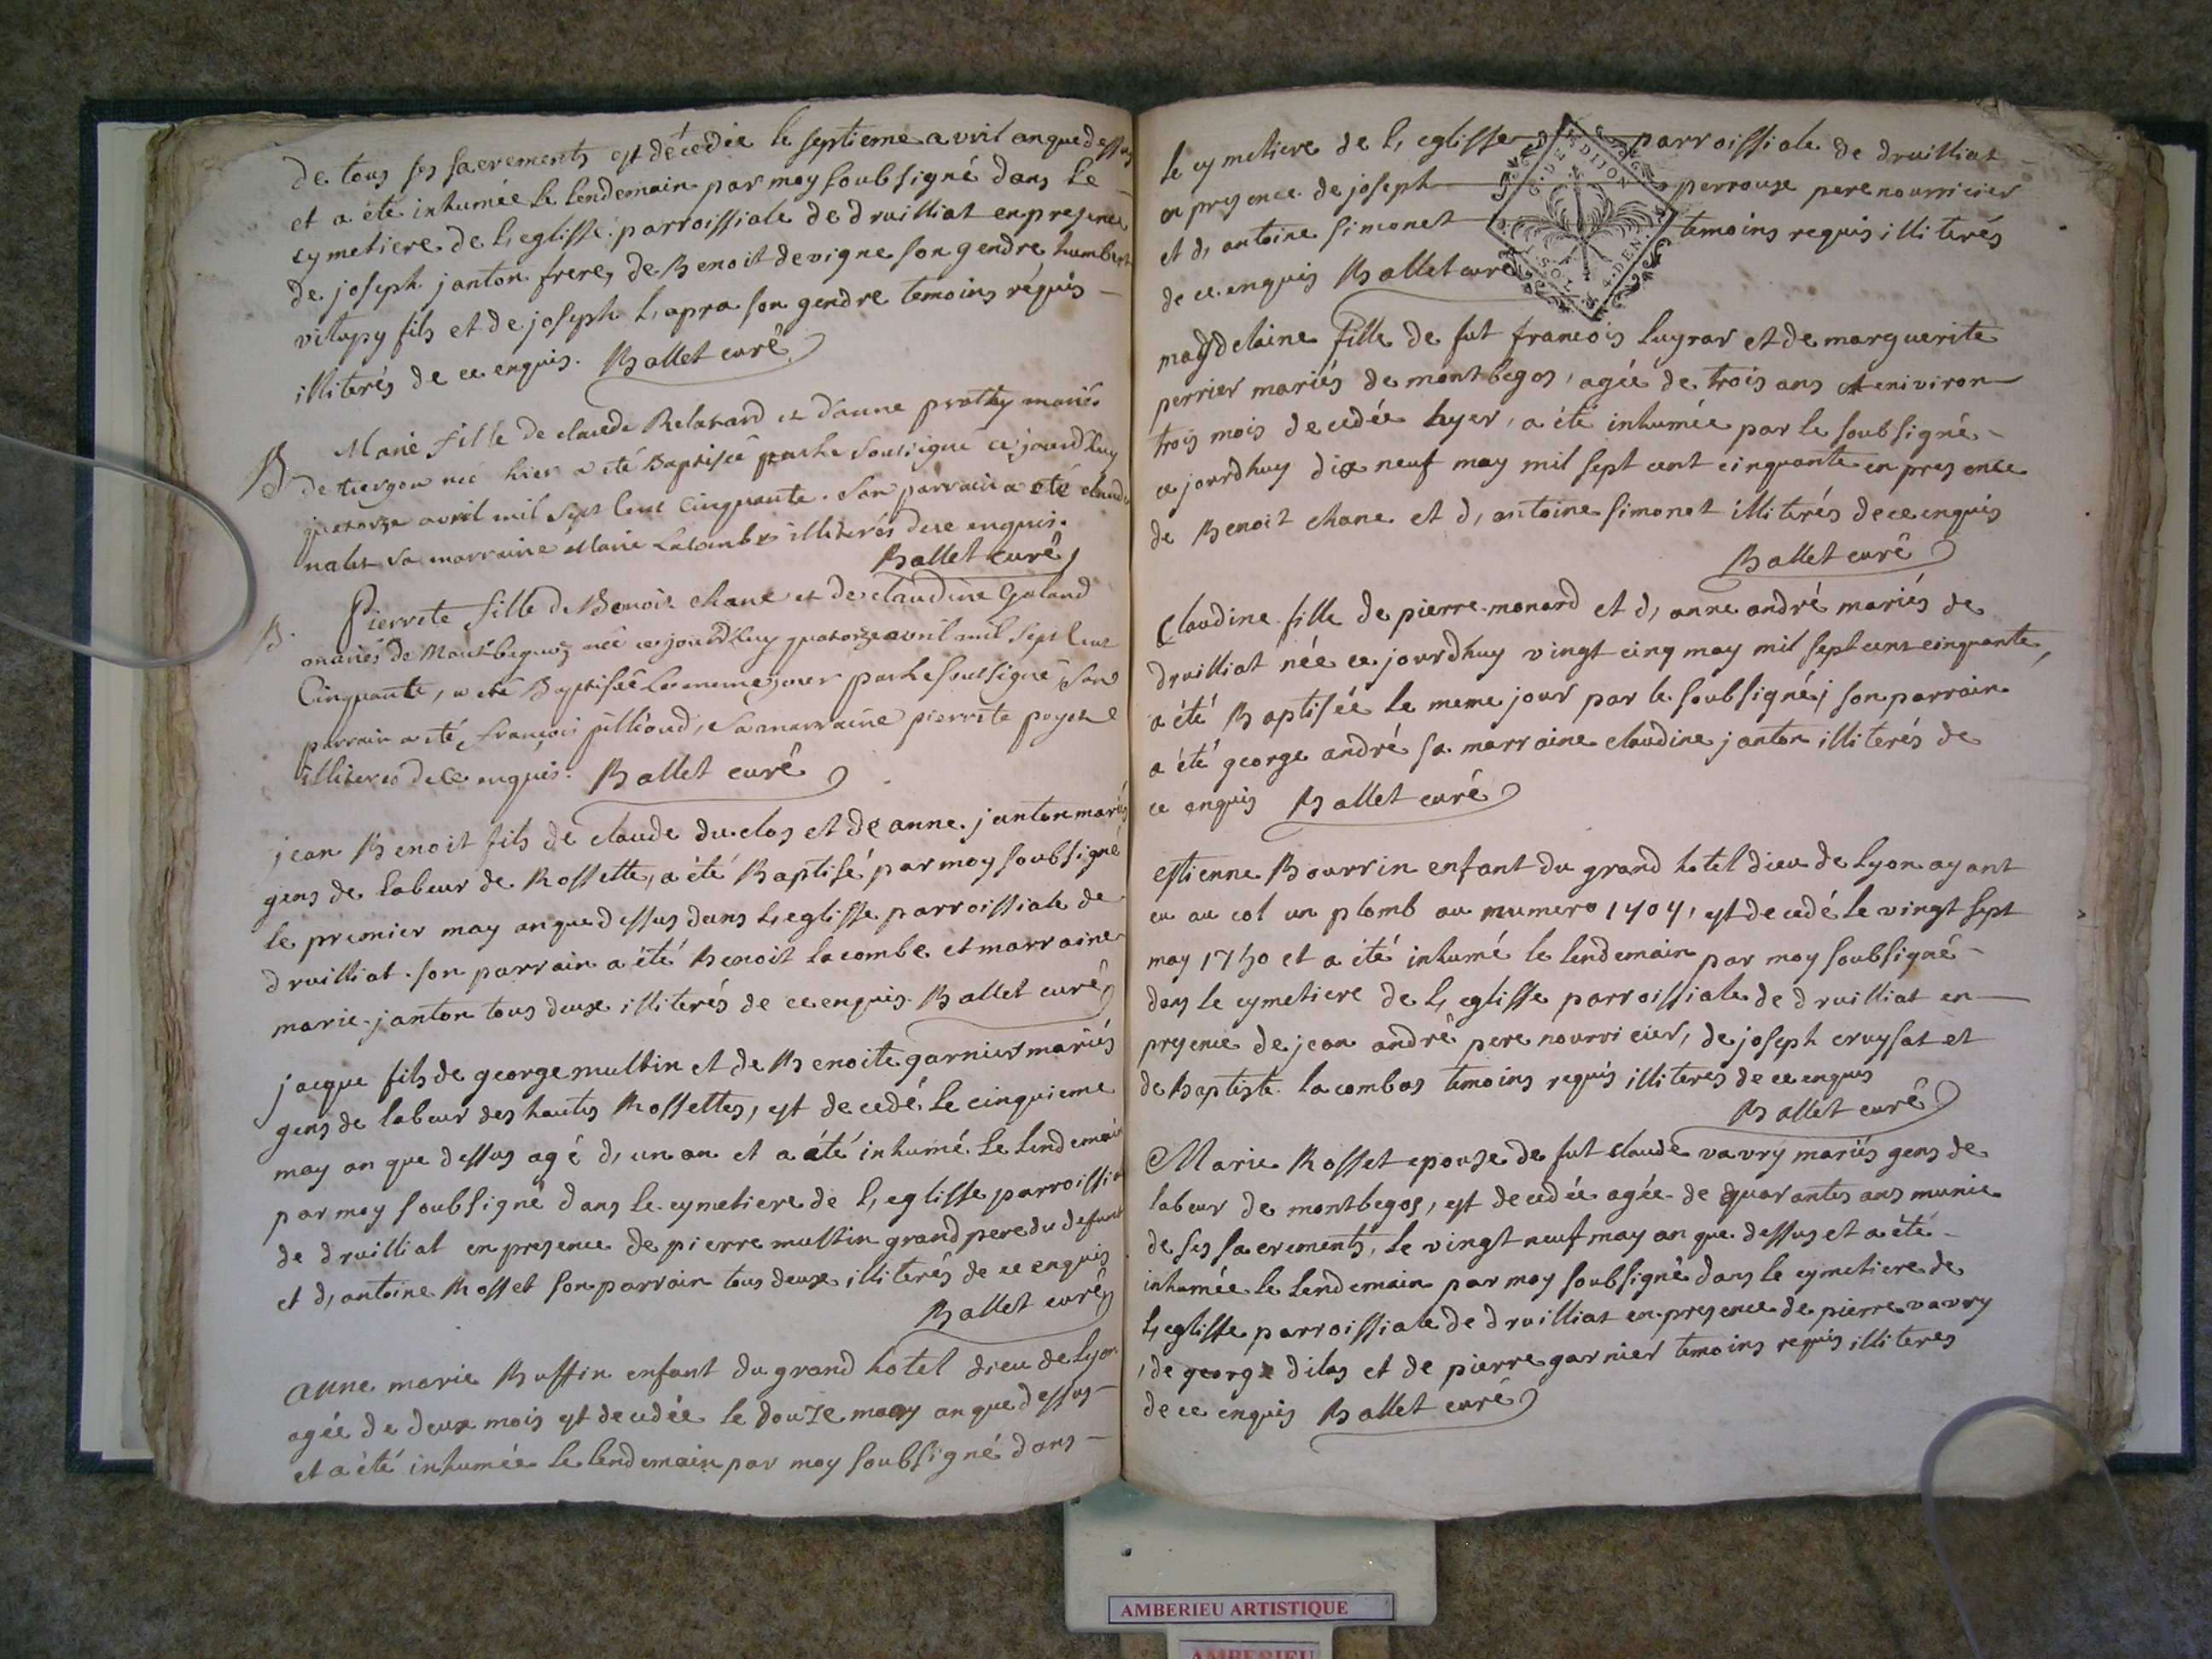 de tous ses sacrements est décédée le septieme avril an que dessus
et a été inhumée le lendemain par moy soubsigné dans le
cymetiere de l'eglisse parroissiale de druilliat en presence
de joseph janton frere, de Benoit devigne son gendre humbert
vitupy fils et de joseph l, apra son gendre temoins requis
illiterés de ce enquis. Ballet curé
B Marie fille de claude Relavard et d'anne prothy mariés
de turgon née hier a été Baptisée par le Soussigné ce jourd'huy
quatorze avril mil sept cent cinquante. Son parrain a été claude
nalet sa marraine Marie Lacombe illiterés de ce enquis.
Ballet curé
B. Pierrete fille de Benoit chane et de claudine Galand
mariés de Montbeguoz née ce jourd'huy quatorze avril mil sept cent
Cinquante, a été Baptisée le meme jour par le soussigné, son
parrain a été françois jullioud, sa marraine pierrete poyet
illiteres de ce enquis. Ballet curé
jean Benoit fils de claude duclos et de anne janton mariés
gens de labeur de Rossette, a été Baptisé par moy soubsigné
le premier may an que dessus dans l, eglisse parroissiale de
druilliat. son parrain a été Benoit lacombe et marraine
marie janton tous deux illiterés de ce enquis. Ballet curé
jacque fils de george multin et de Benoite garnier mariés
gens de labeur des hautes Rossettes, est decedé le cinquieme
may an que dessus agé d, un an et a été inhumé le lendemain
par moy soubsigné dans le cymetiere de l, eglisse parroissia
de druilliat en presence de pierre multin grand pere du defunt
et d, antoine Rosset son parrain tous deux illiterés de ce enquis
Ballet curé
anne marie Buffin enfant du grand hotel dieu de Lyon
agée de deux mois est decedée le douze may an que dessus
et a été inhumée le lendemain par moy soubsigné dans
le cymetiere de l, eglisse parroissiale de druilliat
en presence de joseph perrouse pere nourricier
et d, antoine simonet temoins requis illiterés
de ce enquis Ballet curé
G. DE DIJON
SOL. DEN.
magdelaine fille de fut francois lugrar et de marguerite
perrier mariés de montbegos, agée de trois ans et environ
trois mois decedée hyer, a été inhumée par le soubsigné
ce jourdhuy dix neuf may mil sept cent cinquante en presence
de Benoit chane et d, antoine simonet illiterés de ce enquis
Ballet curé
Claudine fille de pierre monard et d, anne andré mariés de
druilliat née ce jourdhuy vingt cinq may mil sept cent cinquante,
a été Baptisée le meme jour par le soubsigné, son parrain
a été george andré sa marraine claudine janton illiterés de
ce enquis Ballet curé
estienne Bourrin enfant du grand hotel dieu de Lyon ayant
eu au col un plomb au numero 1404, est decedé le vingt sept
may 1750 et a été inhumé le lendemain par moy soubsigné
dans le cymetiere de l, eglisse parroissiale de druilliat en
presence de jean andré pere nourricier, de joseph cruysat et
de Baptiste lacombas temoins requis illiteres de ce enquis
Ballet curé
Marie Rosset epouse de fut claude vavry mariés gens de
labeur de montbegos, est decedée agée de quarantes ans munie
de ses sacrements, le vingt neuf may an que dessus et a été
inhumée le lendemain par moy soubsigné dans le cymetiere de
l, eglisse parroissiale de druilliat en presence de pierre vavry
, de george dilas et de pierre garnier temoins requis illiteres
de ce enquis Ballet curé
AMBERIEU ARTISTIQUE
AMBERIEU